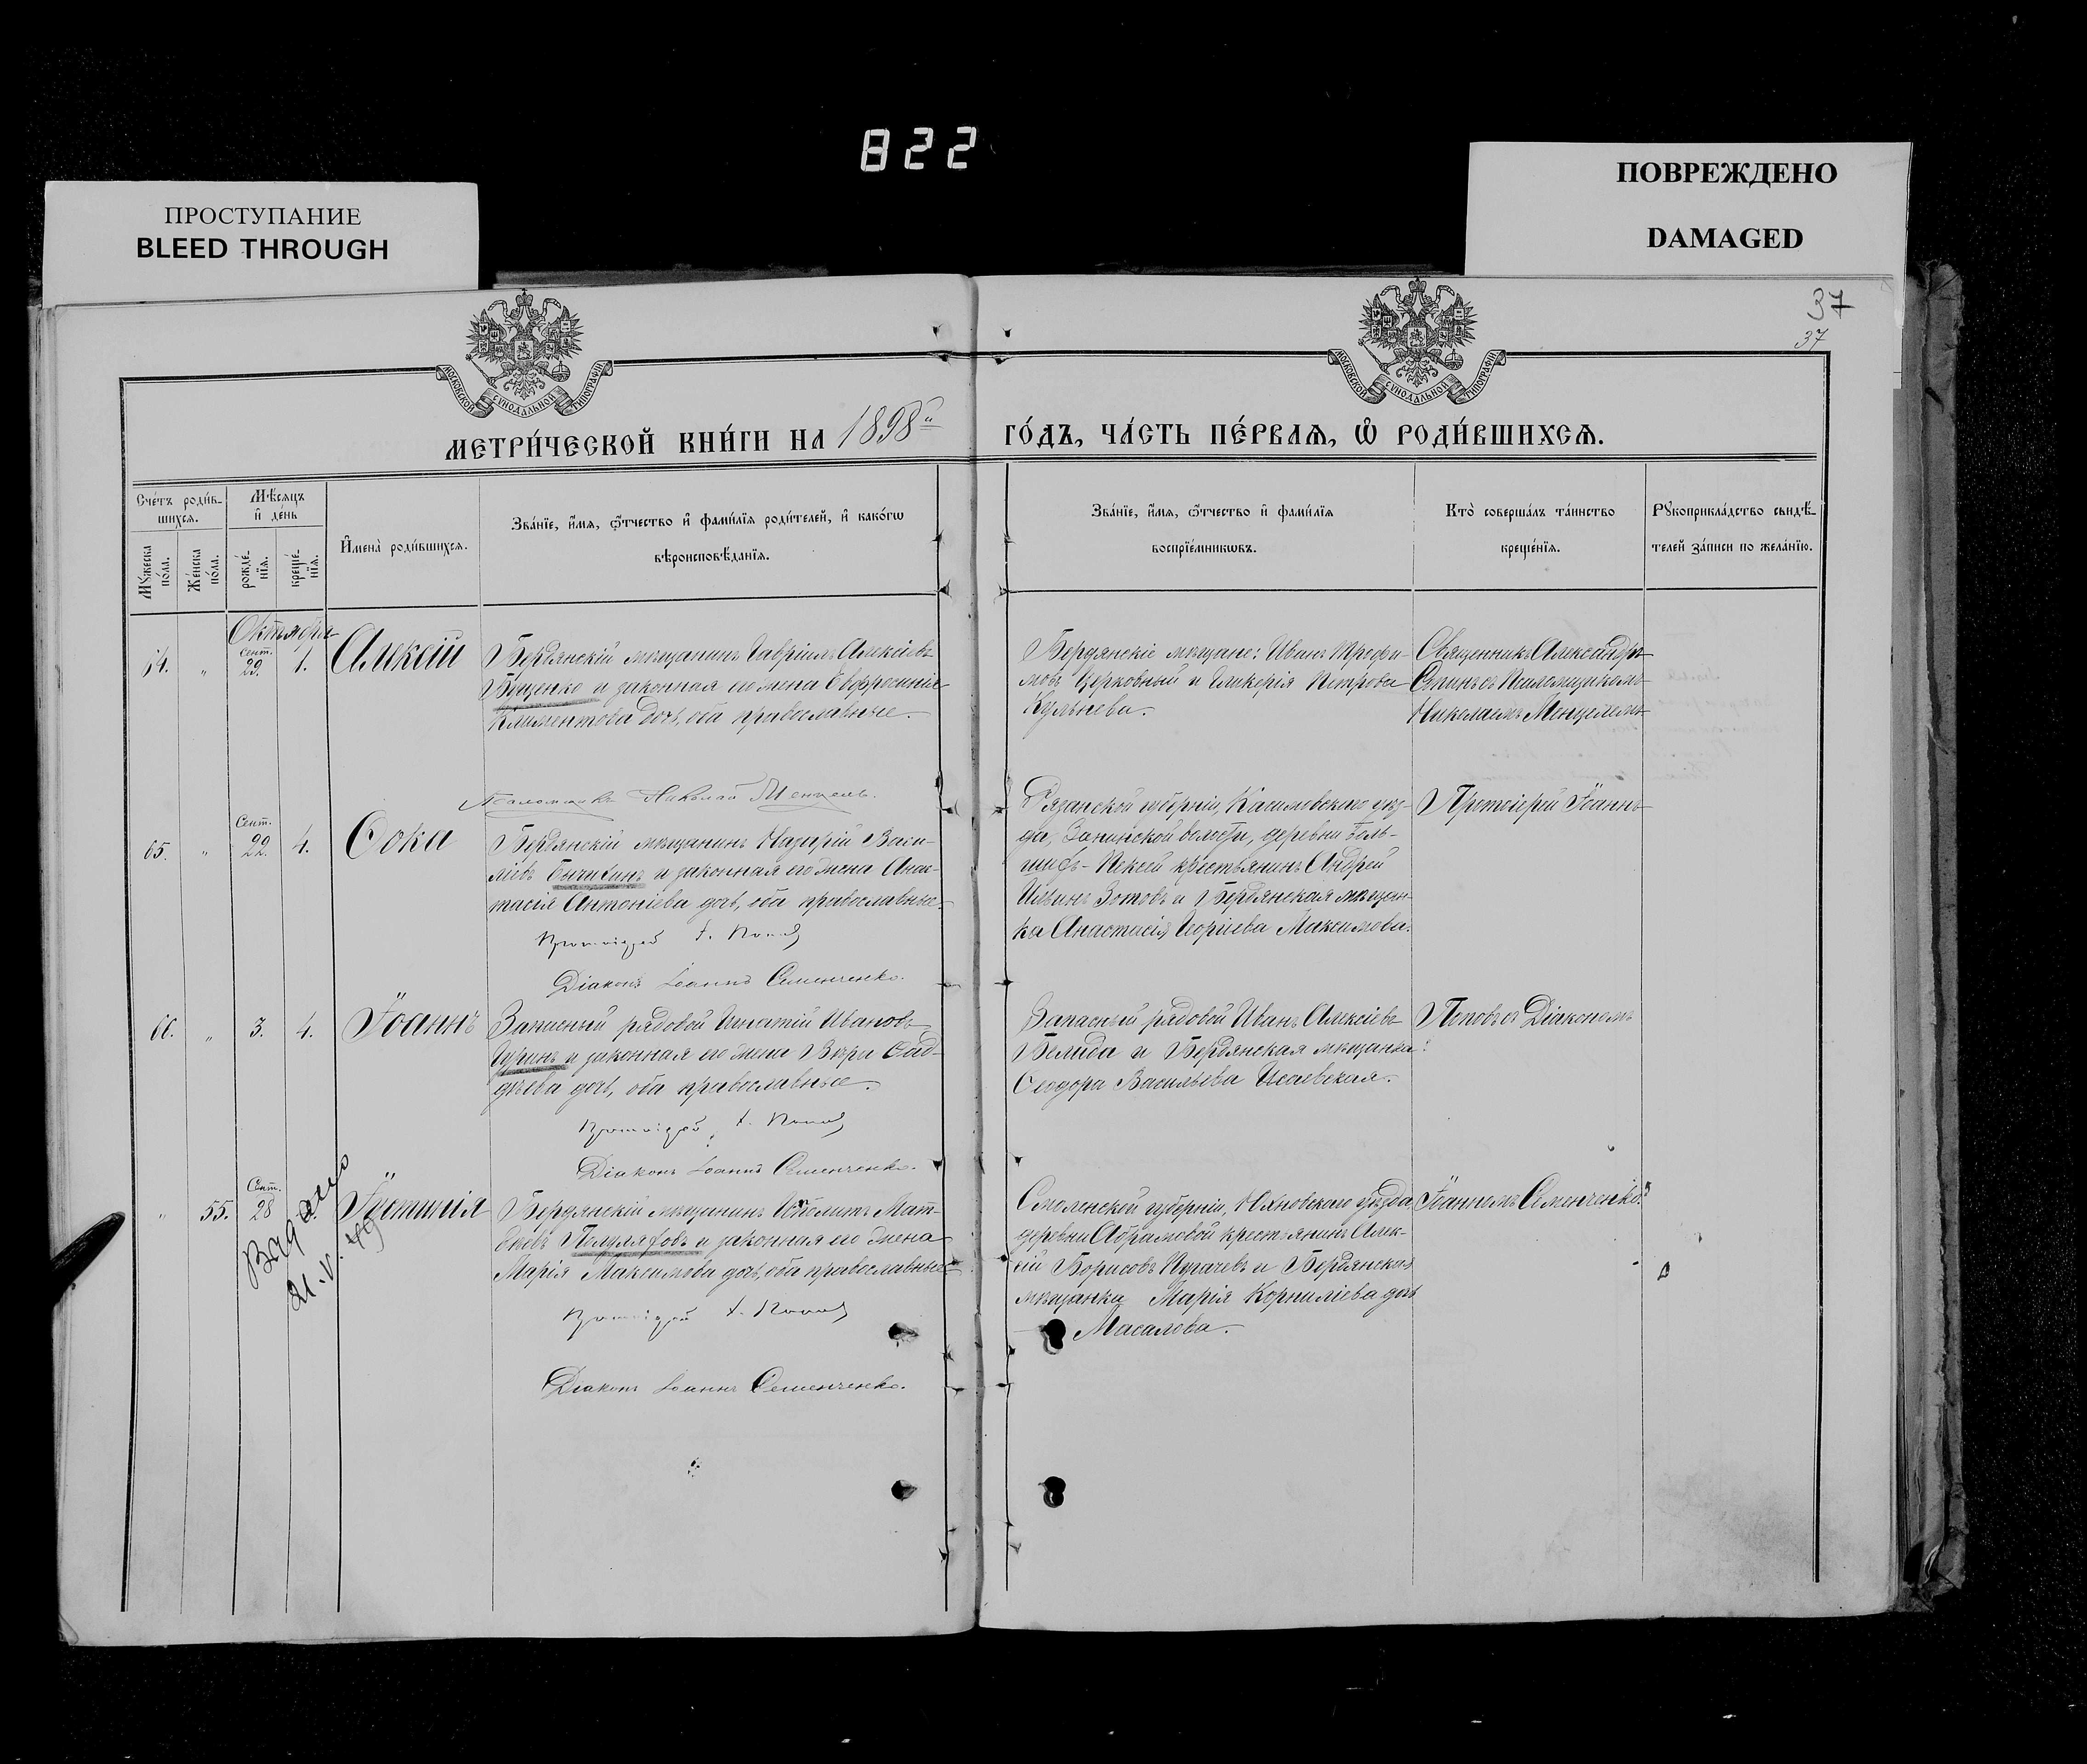 822
ПРОСТУПАНИЕ
BLEED THROUGH
ПОВРЕЖДЕНО
DAMAGED
37
37
МОСКОВСКОЙ СѴНОДАЛЬНОЙ ТИПОГРАФІИ
МОСКОВСКОЙ СѴНОДАЛЬНОЙ ТИПОГРАФІИ
МЕТРИ́ЧЕСКОЙ КНИ́ГИ НА 1898й
ГО́ДЪ, ЧА́СТЬ ПЕ́РВАѦ, Ѡ҆ РОДИ́ВШИХСѦ.
Сче́тъ роди́в-
шихсѧ.
Мѣ́сѧцъ
и҆ де́нь
Мꙋ́жеска по́ла.
Же́нска по́ла.
рожде́-
нїѧ.
креще́-
нїѧ.
И҆мена̀ роди́вшихсѧ.
Зва́нїе, и҆́мѧ, ѻ҆́тчество и҆ фами́лїѧ роди́телей, и҆ како́гѡ
вѣроисповѣ́данїѧ.
Зва́нїе, и҆́мѧ, ѻ҆́тчество и҆ фами́лїѧ
воспрїе́мникѡвъ.
Кто̀ соверша́лъ та́инство
креще́нїѧ.
Рꙋкоприкла́дство свидѣ́-
телей за́писи по жела́нїю.
Октября
64. " Сент. 29. 1. Алексій
Бердянскій мѣщанинъ Гавріилъ Алексіевъ
Бущенко и законная его жена Евфросинія
Климентова дочь, оба православные.
Бердянскіе мѣщане: Иванъ Трофи-
мовъ Церковный и Гликерія Петрова
Кульнева.
Священникъ Александръ
съ Псаломщикомъ
Николаемъ Менцелемъ
Псаломщикъ Николай Менцель.
65. " Сент. 22. 4. Ѳока
Бердянскій мѣщанинъ Назарій Васи-
ліевъ и законная его жена Анас-
тасія Антоніева дочь, оба православные.
Протоіерей І. Поповъ
Діаконъ Іоаннъ Семенченко.
Рязанской губерніи, Касимовскаго уѣз-
да, волости, деревни Боль-
шихъ-Пексей крестьянинъ Андрей
Ильинъ Зотовъ и Бердянская мѣщан-
ка Анастасія Георгіева Максимова.
Протоіерей Іоаннъ
66. " 3. 4. Іоаннъ
Запасный рядовой Игнатій Ивановъ
и законная его жена Вѣра Ѳад-
дѣева дочь, оба православные.
Протоіерей І. Поповъ
Діаконъ Іоаннъ Семенченко.
Запасный рядовой Иванъ Алексіевъ
Белида и Бердянская мѣщанка
Ѳеодора Васильева Исаевская.
Поповъ съ Діакономъ
" 55. Сент. 28 Іустинія
Видано
21.V.49
Бердянскій мѣщанинъ Ипполитъ Мат-
ѳіевъ Полуляховъ и законная его жена
Марія Максимова дочь, оба православные.
Протоіерей І. Поповъ
Діаконъ Іоаннъ Семенченко.
Смоленской губерніи, Юхновскаго уѣзда,
деревни Абрамовой крестьянинъ Алек-
сій Борисовъ Пугачевъ и Бердянская
мѣщанка Марія Корниліева дочь
Масалова.
Іоанномъ Семенченко.